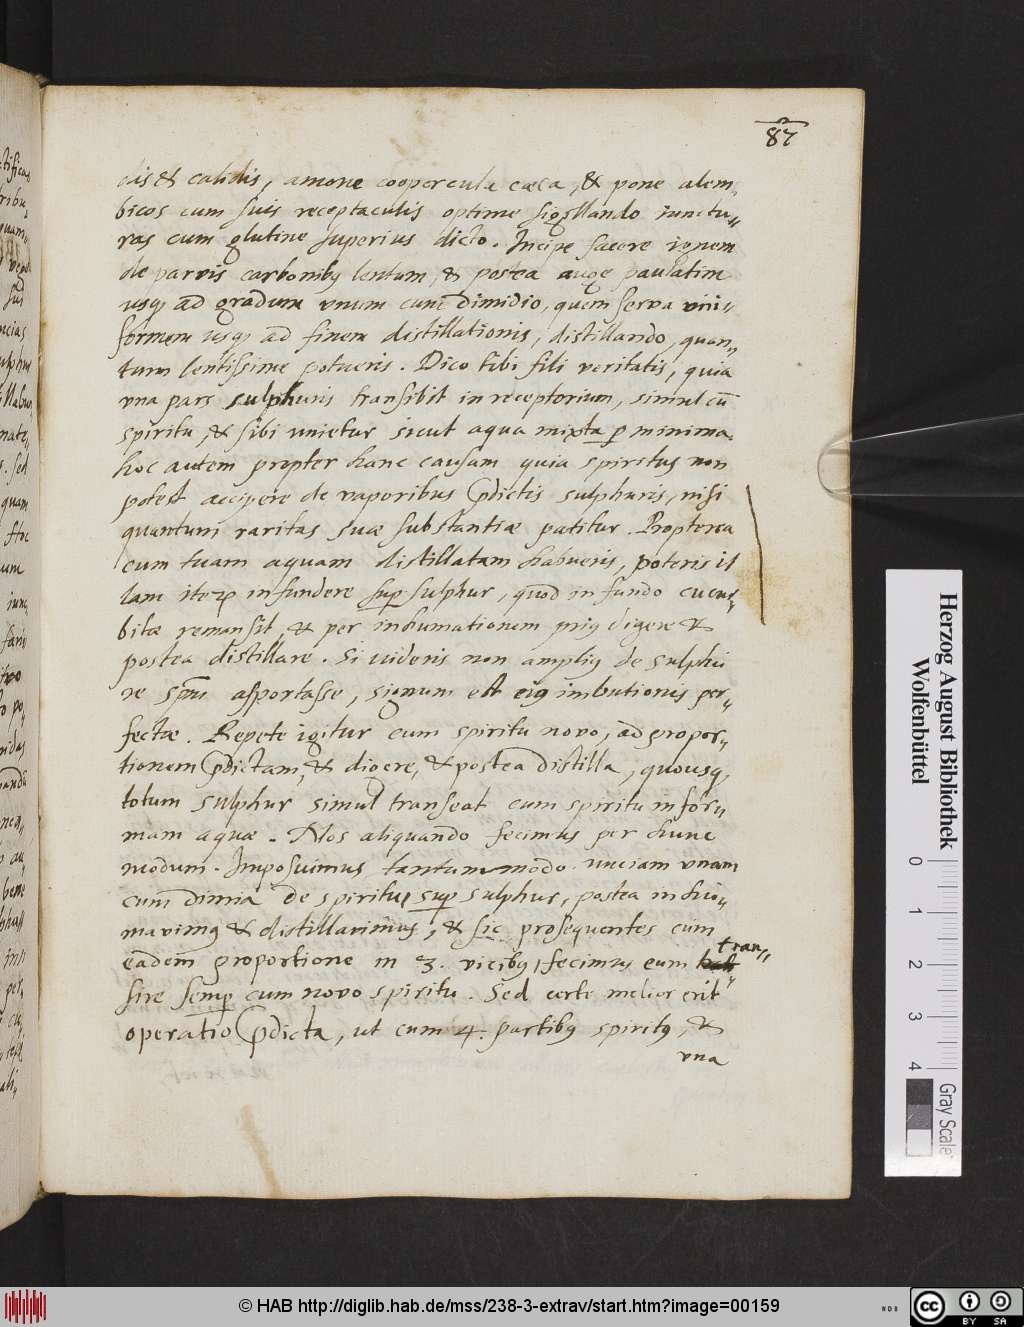 87
cis & calidis, amove coopercula cæca, & pone alem„
bicos cum suis receptaculis optime sigillando iunctu„
ras cum glutine superius dicto. Incipe facere ignem
de parvis carbonibꝰ lentum, & postea auge paulatim
usqꝫ ad gradum vnum cum dimidio, quem serva vni„
formem usqꝫ ad finem distillationis, distillando, quan„
tum lentissime potueris. Dico tibi fili veritatis, quia
vna pars sulphuris transibit in receptorium, simul cū
spiritu, & sibi unietur sicut aqua mixta ꝑ minima.
hoc autem propter hanc causam quia spiritus non
potest accipere de vaporibus p̄dictis sulphuris, nisi
quantum raritas suæ substantiæ patitur. Propterea
cum tuam aquam distillatam habueris, poteris il
lam iteꝝ infundere suꝑ sulphur, quod in fundo cucur„
bitæ remansit, & per inhumationem priꝰ digere &
postea distillare. Si videris non ampliꝰ de sulphu
re sp̄m asportasse, signum est eiꝰ imbutionis per„
fectæ. Repete igitur cum spiritu novo, ad propor„
tionem p̄dictam, & digere, & postea distilla, quousqꝫ
totum sulphur simul transeat cum spiritu in for„
mam aquæ. Nos aliquando fecimus per hunc
modum. Imposuimus tantummodo unciam vnam
cum dimia de spiritu suꝑ sulphur, postea inhu„
mavimꝰ & distillavimus, & sic prosequentes cum
eadem proportione in 3. vicibꝰ fecimus eum tran„
sire semꝑ cum novo spiritu. Sed certe melior erit
operatio p̄dicta, ut cum 4. partibꝰ spiritꝰ, &
vna
Herzog August Bibliothek
Wolfenbüttel
0 1 2 3 4
Gray Scale
© HAB http://diglib.hab.de/mss/238-3-extrav/start.htm?image=00159
cc BY SA